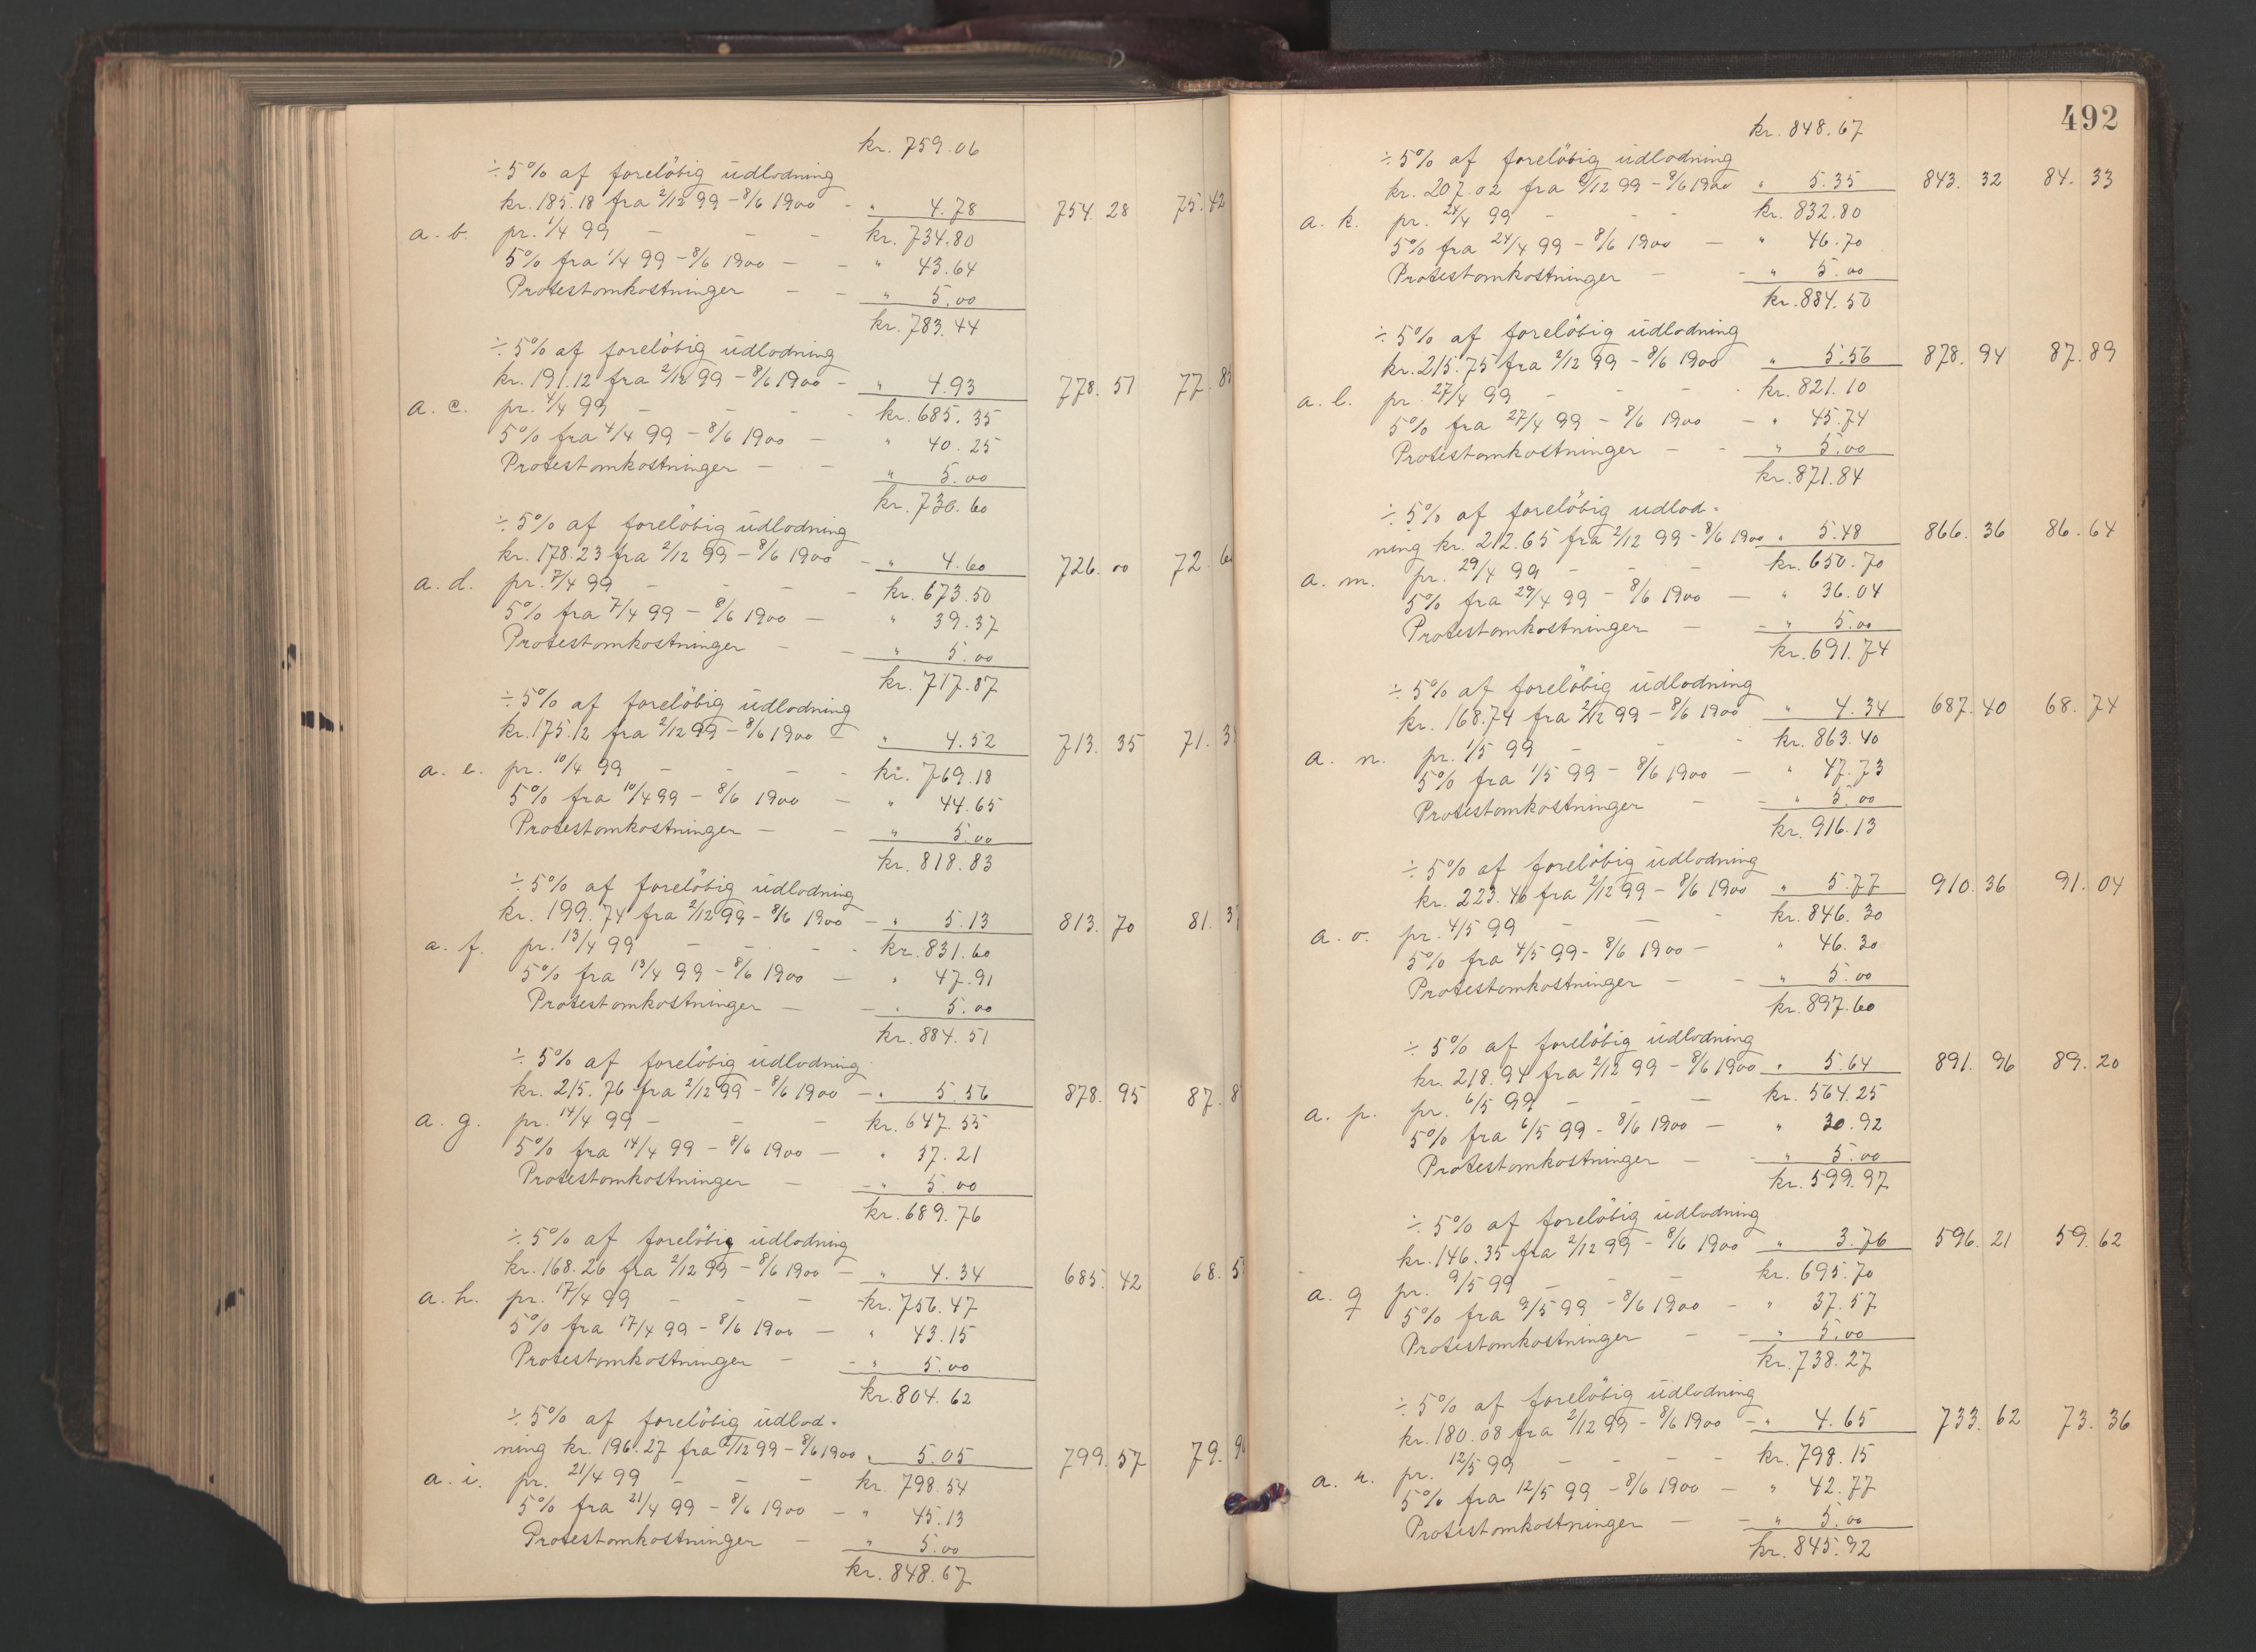 kr. 759.06
÷ 5% af foreløbig üdlodning
kr. 185.18 fra 2/12 99 - 8/6 1900 - " 4.78 754. 28 75. 42
a. b. pr. 1/4 99 - - - kr. 734.80
5% fra 1/4 99 - 8/6 1900 - - " 43.64
Protestomkostninger - - " 5.00
kr. 783.44
÷ 5% af foreløbig üdlodning
kr. 191.12 fra 2/12 99 - 8/6 1900 - " 4.93 778. 51 77. 85
a. c. pr. 4/4 99 - - - - kr. 685.35
5% fra 4/4 99 - 8/6 1900 - " 40.25
Protestomkostninger - - " 5.00
kr. 730.60
÷ 5% af foreløbig üdlodning
kr. 178.23 fra 2/12 99 - 8/6 1900 - " 4.60 726. 00 72. 60
a. d. pr. 7/4 99 - - - kr. 673.50
5% fra 7/4 99 - 8/6 1900 - " 39.37
Protestomkostninger - - " 5.00
kr. 717.87
÷ 5% af foreløbig üdlodning
kr. 175.12 fra 2/12 99 - 8/6 1900 - " 4.52 713. 35 71. 3
a. e. pr. 10/4 99 - - - - kr. 769.18
5% fra 10/4 99 - 8/6 1900 - " 44.65
Protestomkostninger - - " 5.00
kr. 818.83
÷ 5% af foreløbig üdlodning
kr. 199.74 fra 2/12 99 - 8/6 1900 - " 5.13 813. 70 81. 37
a. f. pr. 13/4 99 - - - - kr. 831.60
5% fra 13/4 99 - 8/6 1900 - " 47.91
Protestomkostninger - - " 5.00
kr. 884.51
÷ 5% af foreløbig üdlodning
kr. 215.76 fra 2/12 99 - 8/6 1900 - " 5.56 878. 95 87. 8
a. g. pr. 14/4 99 - - - kr. 647.55
5% fra 14/4 99 - 8/6 1900 - " 37.21
Protestomkostninger - - " 5.00
kr. 689.76
÷ 5% af foreløbig üdlodning
kr. 168.26 fra 2/12 99 - 8/6 1900 - " 4.34 685. 42 68. 5
a. h. pr. 17/4 99 - - - kr. 756.47
5% fra 17/4 99 - 8/6 1900 - " 43.15
Protestomkostninger - - " 5.00
kr. 804.62
÷ 5% af foreløbig üdlod-
ning kr. 196.27 fra 2/12 99 - 8/6 1900 " 5.05 799. 57 79. 96
a. i. pr. 21/4 99 - - - kr. 798.54
5% fra 21/4 99 - 8/6 1900 - " 45.13
Protestomkostninger - " 5.00
kr. 848.67
492
kr. 848.67
÷ 5% af foreløbig üdlodning
kr. 207.02 fra 2/12 99 - 8/6 1900 " 5.35 843. 32 84. 33
a. k. pr. 24/4 99 - - - kr. 832.80
5% fra 24/4 99 - 8/6 1900 - " 46.70
Protestomkostninger - - " 5.00
kr. 884.50
÷ 5% af foreløbig üdlodning
kr. 215.75 fra 2/12 99 - 8/6 1900 " 5.56 878. 94 87. 89
a. l. pr. 27/4 99 - - - - kr. 821.10
5% fra 27/4 99 - 8/6 1900 - " 45.74
Protestomkostninger - - " 5.00
kr. 871.84
÷ 5% af foreløbig udlod-
ning kr. 212.65 fra 2/12 99 - 8/6 1900 " 5.48 866. 36 86. 64
a. m. pr. 29/4 99 - - - kr. 650.70
5% fra 29/4 99 - 8/6 1900 - " 36.04
Protestomkostninger - - " 5.00
kr. 691.74
÷ 5% af foreløbig üdlodning
kr. 168.74 fra 2/12 99 - 8/6 1900 " 4.34 687. 40 68. 74
a. n. pr. 1/5 99 - - - kr. 863.40
5% fra 1/5 99 - 8/6 1900 - " 47.73
Protestomkostninger - - " 5.00
kr. 916.13
÷ 5% af foreløbig üdlodning
kr. 223.46 fra 2/12 99 - 8/6 1900 " 5.77 910. 36 91. 04
a. o. pr. 4/5 99 - - - kr. 846.30
5% fra 4/5 99 - 8/6 1900 - " 46.30
Protestomkostninger - - " 5.00
kr. 897.60
÷ 5% af foreløbig üdlodning
kr. 218.94 fra 2/12 99 - 8/6 1900 - " 5.64 891. 96 89. 20
a. p. pr. 6/5 99 - - - kr. 564.25
5% fra 6/5 99 - 8/6 1900 - " 30.92
Protestomkostninger - - " 5.00
kr. 599.97
÷ 5% af foreløbig üdlodning
kr. 146.35 fra 2/12 99 - 8/6 1900 " 3.76 596. 21 59. 62
a. q pr. 9/5 99 - - - kr. 695.70
5% fra 9/5 99 - 8/6 1900 - " 37.57
Protestomkostninger - - " 5.00
kr. 738.27
÷ 5% af foreløbig üdlodning
kr. 180.08 fra 2/12 99 - 8/6 1900 - " 4.65 733. 62 73. 36
a. r. pr. 12/5 99 - - - - kr. 798.15
5% fra 12/5 99 - 8/6 1900 - " 42.77
Protestomkostninger - - " 5.00
kr. 845.92